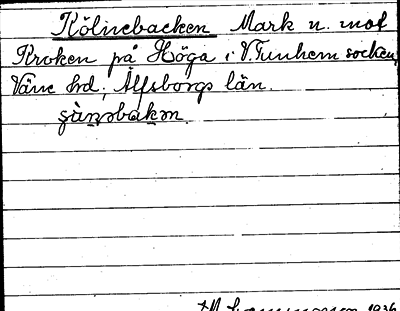 Kölnebacken Mark n. mot
Kroken på Höga i V. Tunhem socken,
Väne hd, Älfsborgs län.
1936